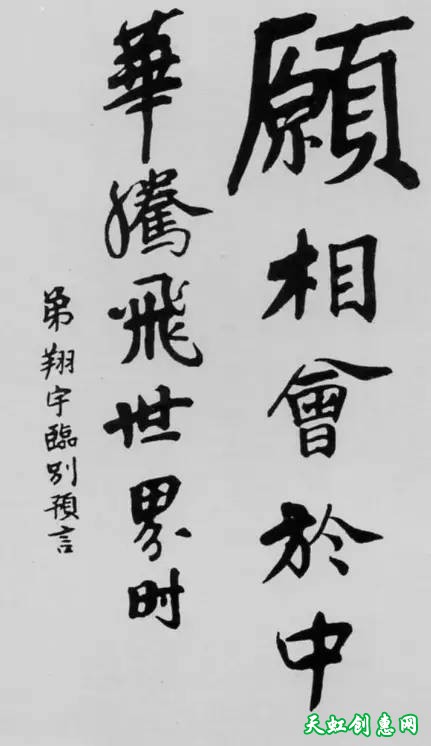 願相會於中
華騰飛世界时
弟翔宇臨别預言
天虹创惠网